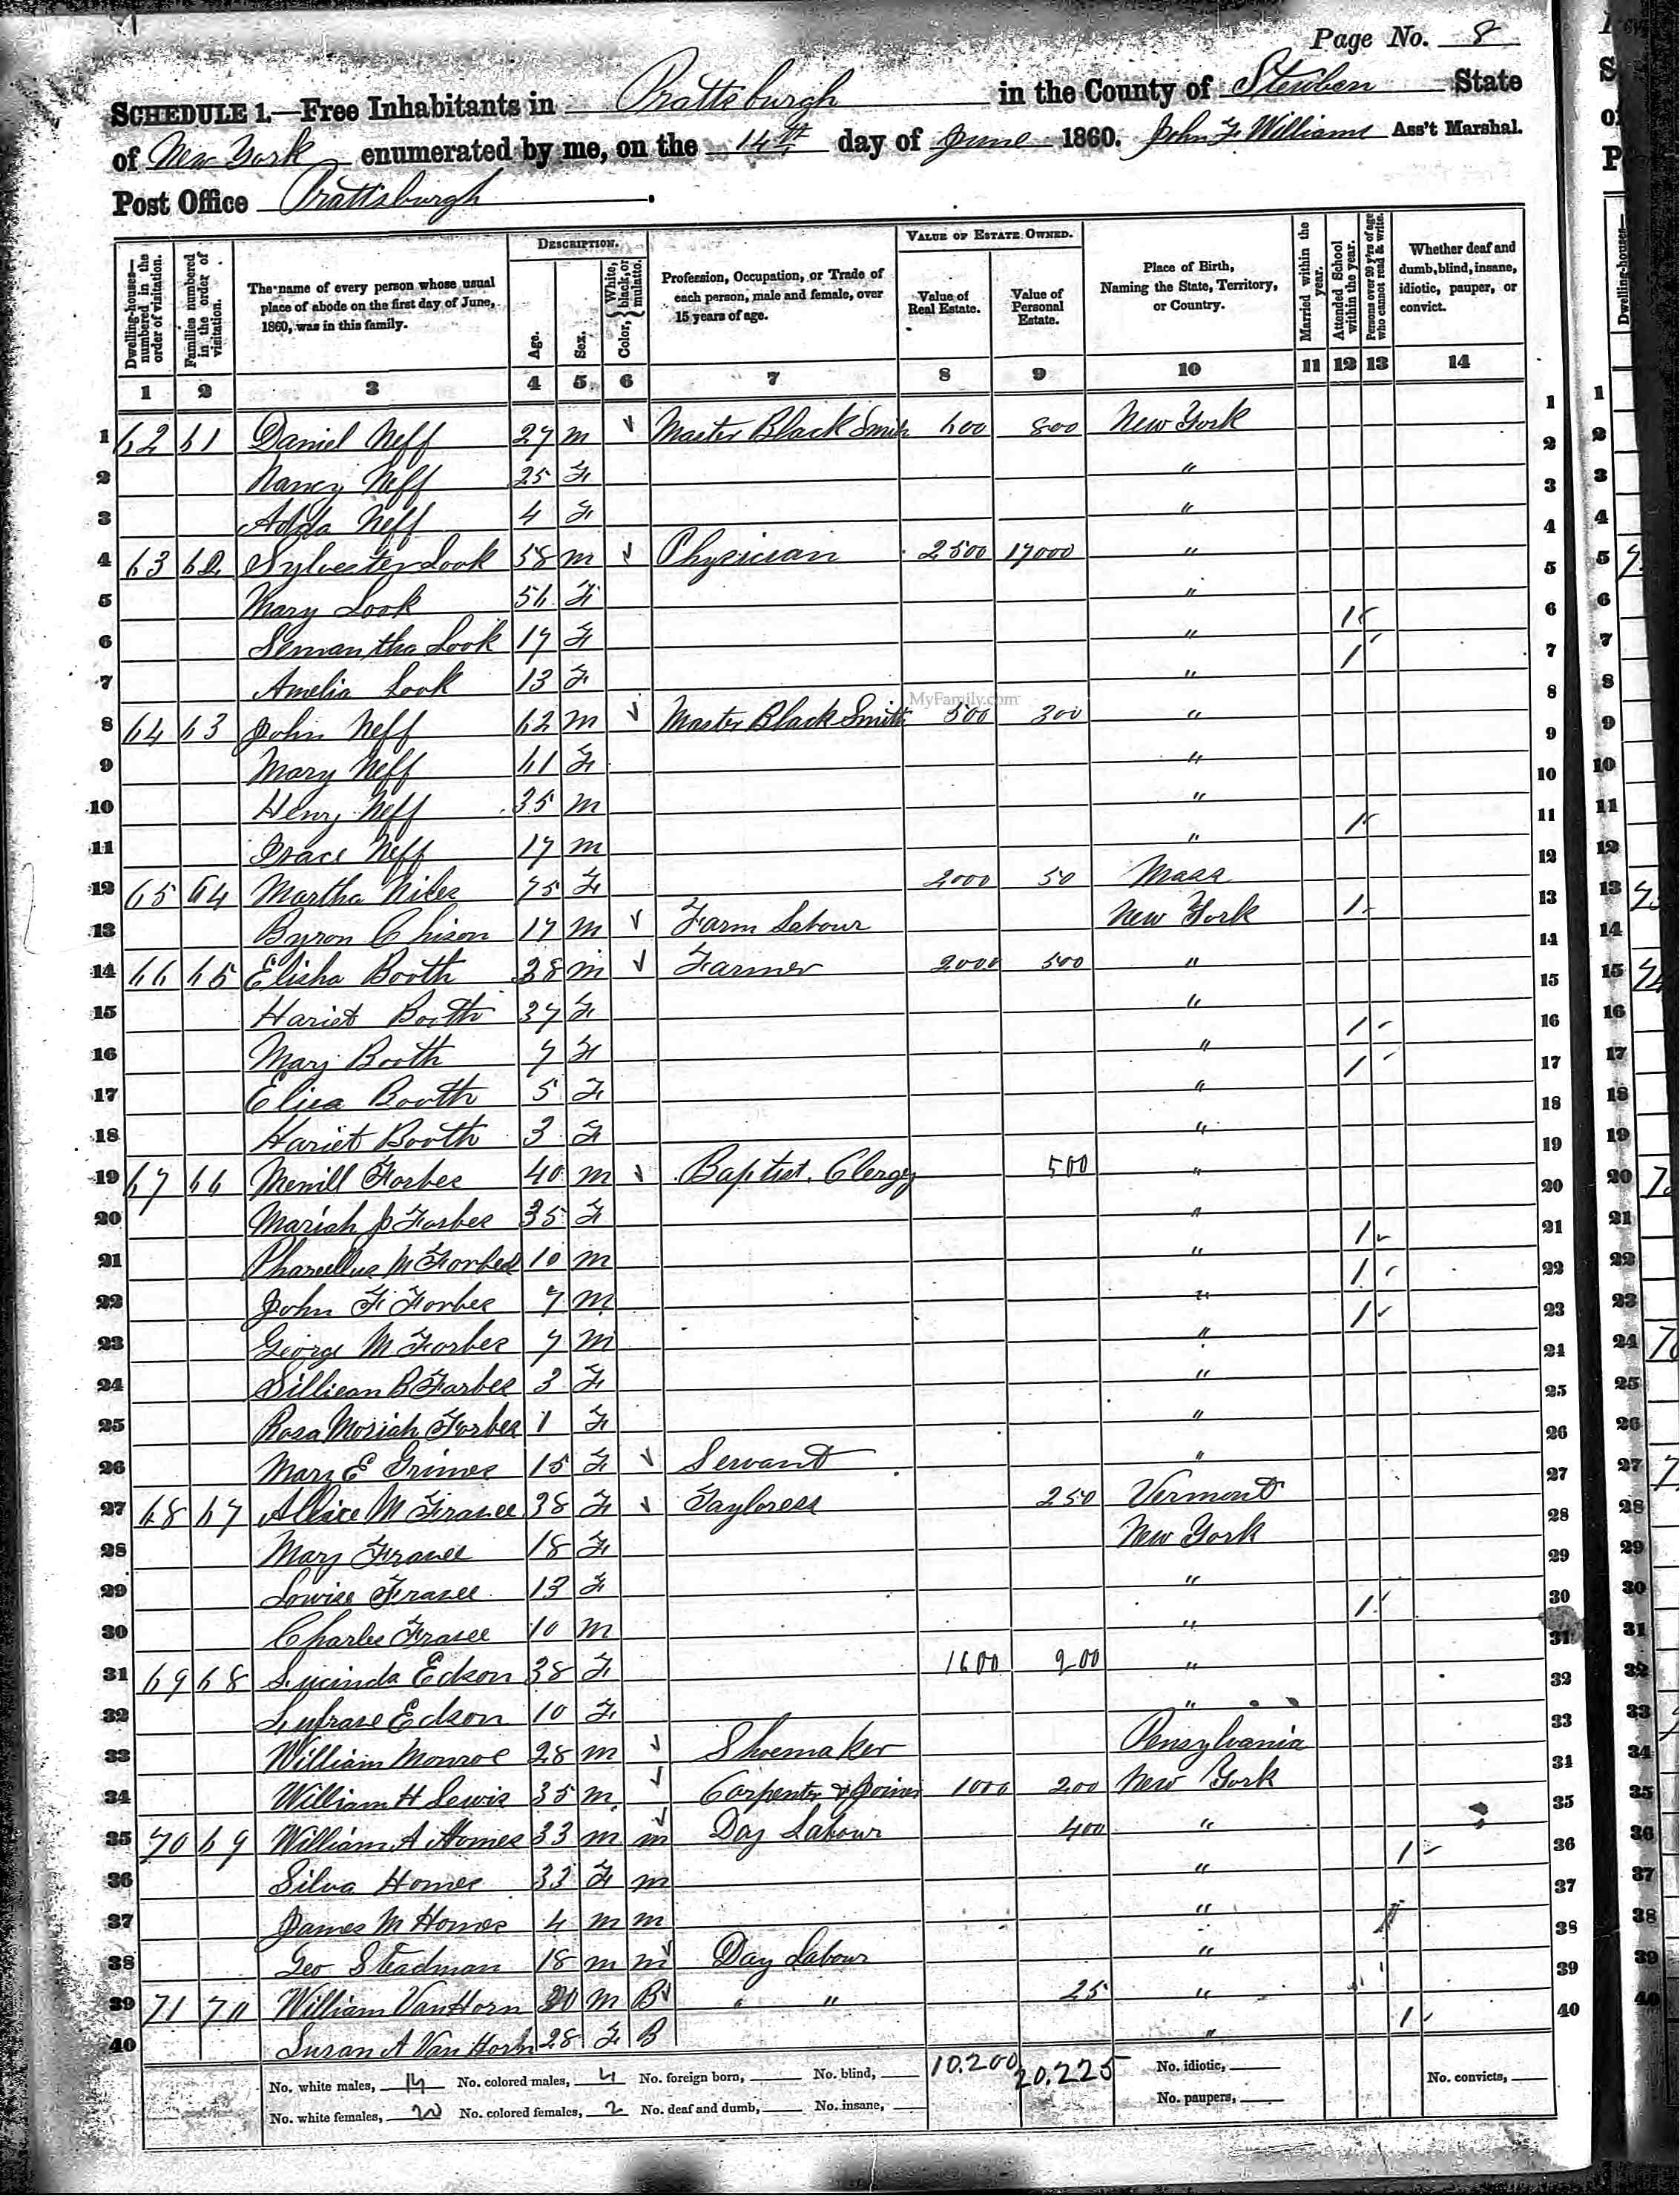 Page No. 8
SCHEDULE 1.—Free Inhabitants in Prattsburgh in the County of Steuben State
of New York enumerated by me, on the 14th day of June 1860. John F Williams Ass't Marshal.
Post Office Prattsburgh.
Dwelling-houses—numbered in the order of visitation.
Families numbered in the order of visitation.
The name of every person whose usual place of abode on the first day of June, 1860, was in this family.
DESCRIPTION.
Age.
Sex.
Color, { White, black, or mulatto.
Profession, Occupation, or Trade of each person, male and female, over 15 years of age.
VALUE OF ESTATE OWNED.
Value of Real Estate.
Value of Personal Estate.
Place of Birth, Naming the State, Territory, or Country.
Married within the year.
Attended School within the year.
Persons over 20 y'rs of age who cannot read & write.
Whether deaf and dumb, blind, insane, idiotic, pauper, or convict.
1 2 3 4 5 6 7 8 9 10 11 12 13 14
1 62 61 Daniel Neff 27 m Master Black Smith 600 800 New York
2 Nancy Neff 25 F "
3 Adda Neff 4 F "
4 63 62 Sylvester Look 58 m Physician 2500 17000 "
5 Mary Look 56 F "
6 Semantha Look 17 F " 1
7 Amelia Look 13 F " 1
8 64 63 John Neff 62 m Master Black Smith 500 300 "
MyFamily.com
9 Mary Neff 61 F "
10 Henry Neff 35 m "
11 Neff 17 m " 1
12 65 64 Martha Niles 75 F 2000 50 Mass
13 Byron Chison 17 m Farm Labour New York 1
14 66 65 Elisha Booth 38 m Farmer 2000 500 "
15 Hariet Booth 37 F "
16 Mary Booth 7 F " 1
17 Eliza Booth 5 F " 1
18 Hariet Booth 3 F "
19 67 66 Merrill Forbes 40 m Baptist Clergy 500 "
20 Mariah J Forbes 35 F "
21 Pharcellus M Forbes 10 m " 1
22 John F Forbes 7 m " 1
23 George M Forbes 7 m " 1
24 Lilliean B Forbes 3 F "
25 Rosa Moriah Forbes 1 F "
26 Mary E Grimes 15 F Servant "
27 68 67 Allice M Frasee 38 F Tayloress 250 Vermont
28 Mary Frasee 18 F New York
29 Lowise Frasee 13 F "
30 Charles Frasee 10 m " 1
31 69 68 Lucinda Edson 38 F 1600 900 "
32 Edson 10 F "
33 William Monroe 28 m Shoemaker Pensylvania
34 William H Lewis 35 m Carpenter & Joiner 1000 200 New York
35 70 69 William A Homes 33 m m Day Labour 400 "
36 Silva Homes 33 F m " 1
37 James M Homes 4 m m "
38 Geo Steadman 18 m m Day Labour "
39 71 70 William VanHorn 30 m B " " 25 "
40 Susan A Van Horn 28 F B " 1
No. white males, 14 No. colored males, 4 No. foreign born, No. blind, 10.200 20.225 No. idiotic,
No. white females, 20 No. colored females, 2 No. deaf and dumb, No. insane, No. paupers, No. convicts,